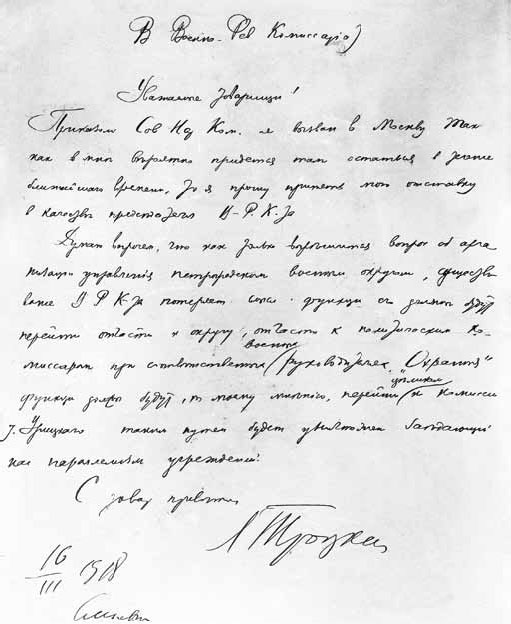 В Военно-Рев Комиссариат
Уважаемые товарищи!
Приказом Сов Нар Ком. я вызван в Москву Так
как в мне вероятно придется там остаться в течение
ближайшего времени, то я прошу принять мою отставку
в качестве председателя В-Р.К-та
Думаю впрочем, что как только разрешится вопрос об орга
низации управления петроградским военным округом, существо
вание В Р К-та потеряет смысл. функции его должны будут
перейти отчасти к округу, отчасти к политическим ко-
миссарам при ответственных военных руководителях. "Охранные"
функции должны будут, по моему мнению, перейти целиком к Комиссии
т. Урицкого таким путем будет уничтожен
нас параллелизм учреждений.
С товар приветом
Л Троцкий
16
III 1918